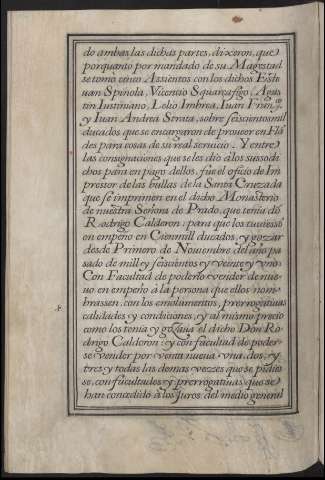 do ambas las dichas partes, dixeron, que
porquanto por mandado de su Magestad
se tomo cinco Assientos con los dichos Este
uan Spinola, Vicentio Squarçafigo, Agus
tin Iustiniano, Lelio Imbrea, Iuan
y Iuan Andrea Strata, sobre seiscientosmil
ducados que se encargaron de proueer en Flã
des para cosas de su real seruicio. Y entre
las consignaciones que se les dio a los sussodi
chos para en pago dellos, fue el oficio de Im
pressor de las bullas de la Santa Cruzada
que se imprimen en el dicho Monasterio
de nuestra Señora de Prado, que tenia dõ
Rodrigo Calderon: para que los tuuiesse
en empeño en Cienmill ducados, y gozar
desde Primero de Nouiembre del año pa
sado de mill y seiscientos y veinte y vno.
Con Facultad de poderlo vender de nue
uo en empeño a la persona que ellos nom
brassen, con los emolumentos, prerrogatiuas
calidades y condiciones, y al mismo precio
como los tenia y goçaua el dicho Don Ro
drigo Calderon: y con facultad de poder
se vender por venta nueua vna, dos, y
tres y todas las demas vezes que se pidies
se, con facultades y prerrogatiuas que se
han concedido a los Iuros del medio general